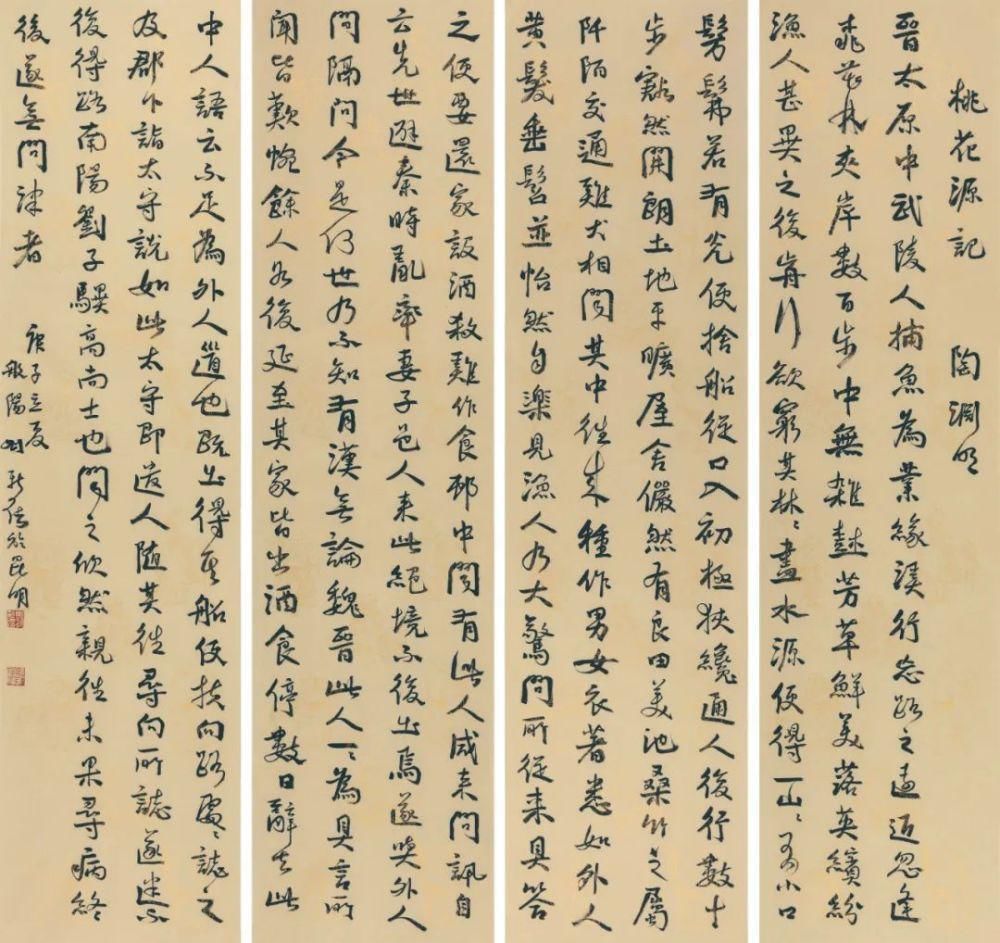 桃花源記 陶淵明
晉太原中武陵人捕魚為業緣溪行忘路之遠近忽逢
桃花林夾岸數百步中無雜樹芳草鮮美落英繽紛
漁人甚異之復前行欲窮其林〻盡水源便得一山〻有小口
髣髴若有光便捨船從口入初極狹纔通人復行數十
步豁然開朗土地平曠屋舍儼然有良田美池桑竹之屬
阡陌交通雞犬相聞其中往來種作男女衣著悉如外人
黃髮垂髫並怡然自樂見漁人乃大驚問所從來具答
之便要還家設酒殺雞作食邨中聞有此人咸來問訊自
云先世避秦時亂率妻子邑人來此絕境不復出焉遂與外人
間隔問今是何世乃不知有漢無論魏晉此人一〻為具言所
聞皆歎惋餘人各復延至其家皆出酒食停數日辭去此
中人語云不足為外人道也既出得其船便扶向路處〻誌之
及郡下詣太守說如此太守即遣人隨其往尋向所誌遂迷不
復得路南陽劉子驥高尚士也聞之欣然親往未果尋病終
後遂無問津者
庚子立夏
般陽 於昆明